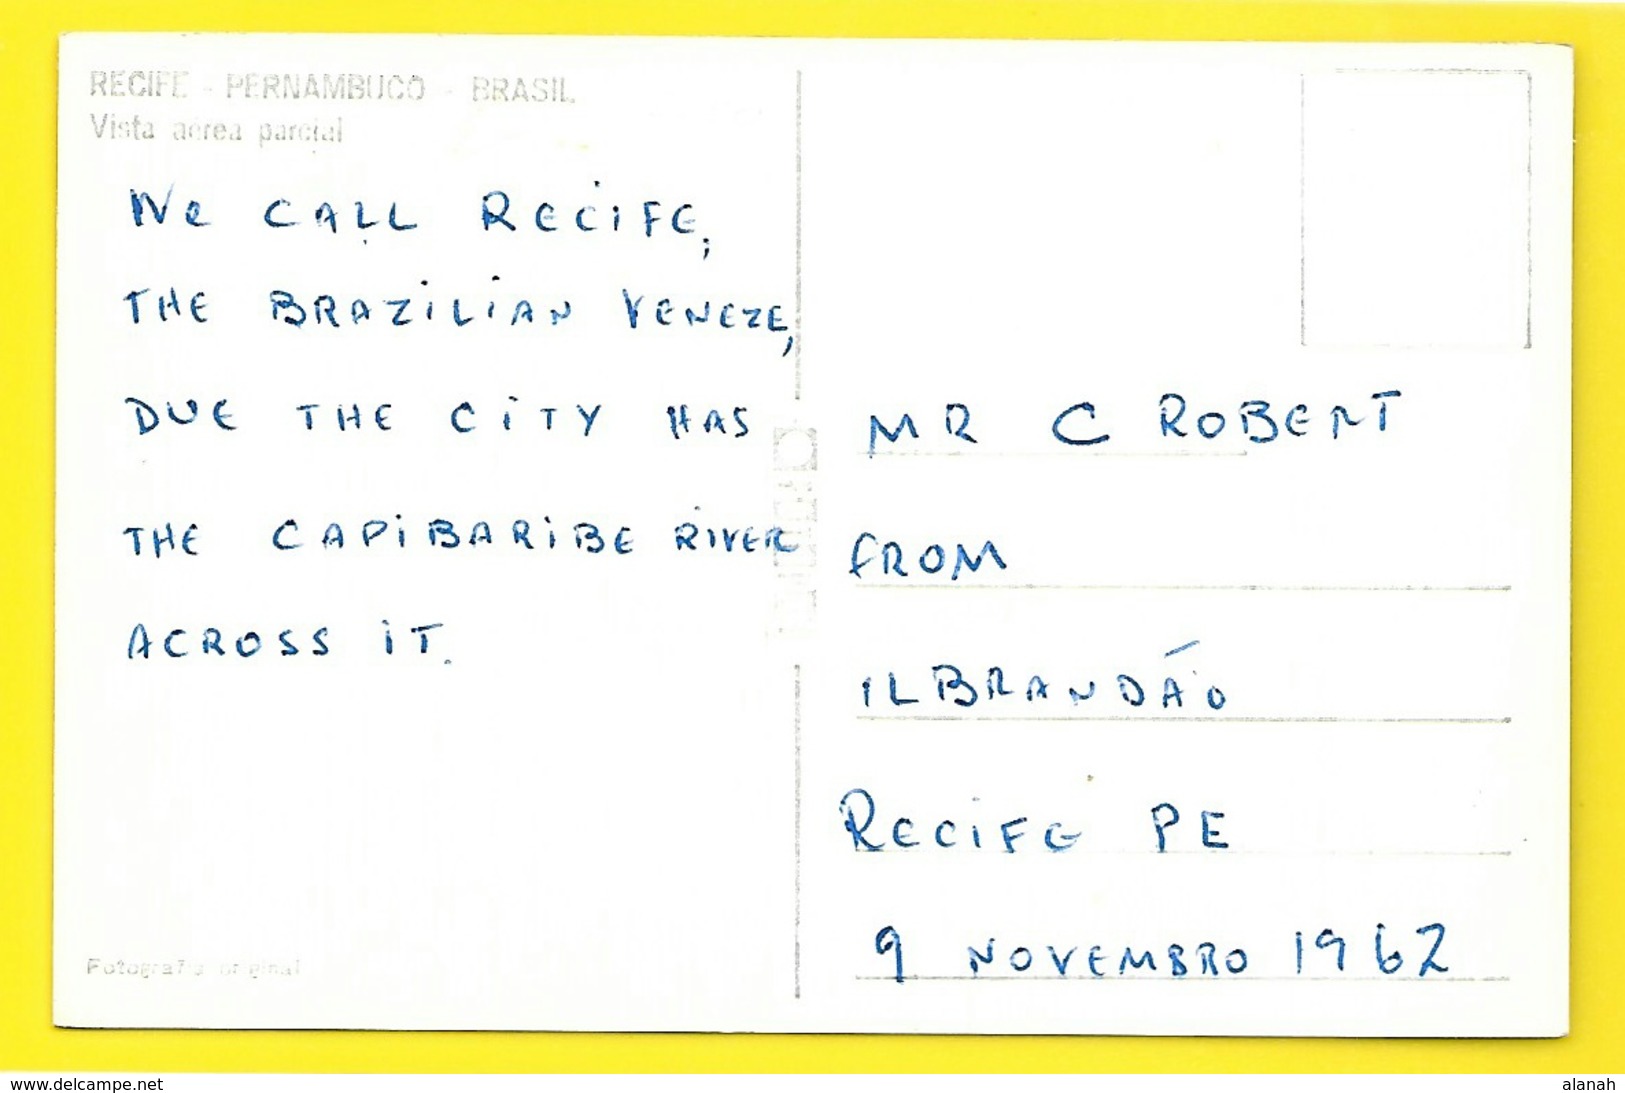 RECIFE - PERNAMBUCO - BRASIL
Vista aérea parcial
We CALL RECiFE,
THE BRAZiLiAN VENEZE,
DUE THE CiTY HAS
THE CAPiBARiBE RIVER
ACROSS iT.
Fotografia original
MR C ROBERT
FROM
ILBRANDÁO
RECiFE PE
9 NOVEMBRO 1962
www.delcampe.net
alanah